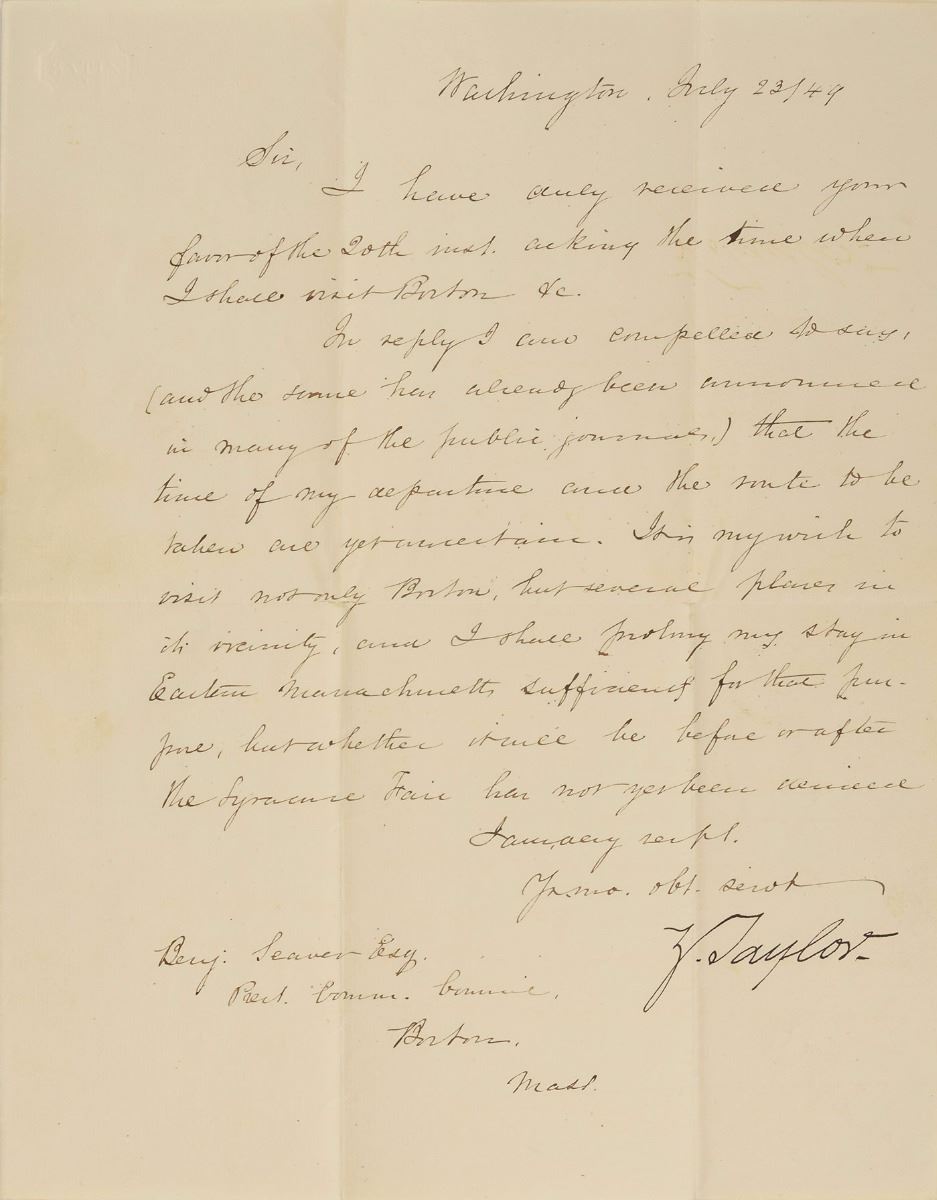 Washington, July 23/49
Sir,
I have duly received your
favor of the 20th inst. asking the time when
I shall visit Boston &c.
In reply I am compelled to say,
(and the same has already been announced
in many of the public journals,) that the
time of my departure and the route to be
taken are yet uncertain. It is my wish to
visit not only Boston, but several places in
its vicinity, and I shall prolong my stay in
Eastern Massachusetts sufficiently for that pur-
pose, but whether it will be before or after
the Syracuse Fair has not yet been decided
I am, very respl.
Yr. mo. obt. servt
Z. Taylor.
Benj. Seaver Esq.
Prest. Comm. Council,
Boston,
Mass.